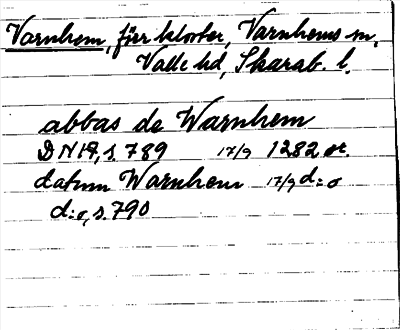 Varnhem, förr kloster, Varnhems sn,
Valle hd, Skarab. l.
abbas de Warnhem
DN 19, s. 789 17/9 1282 or.
datum Warnhem 17/9 d:o
d:o, s. 790